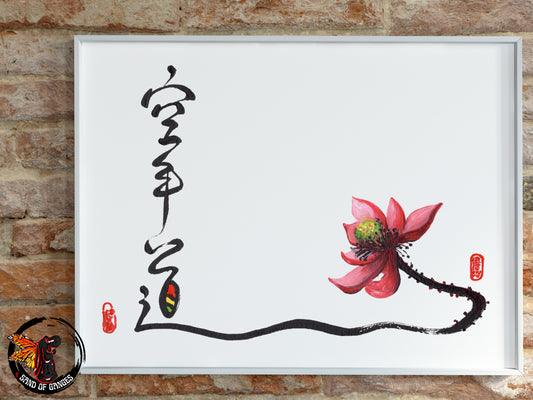 空手道
SAND OF GANGES